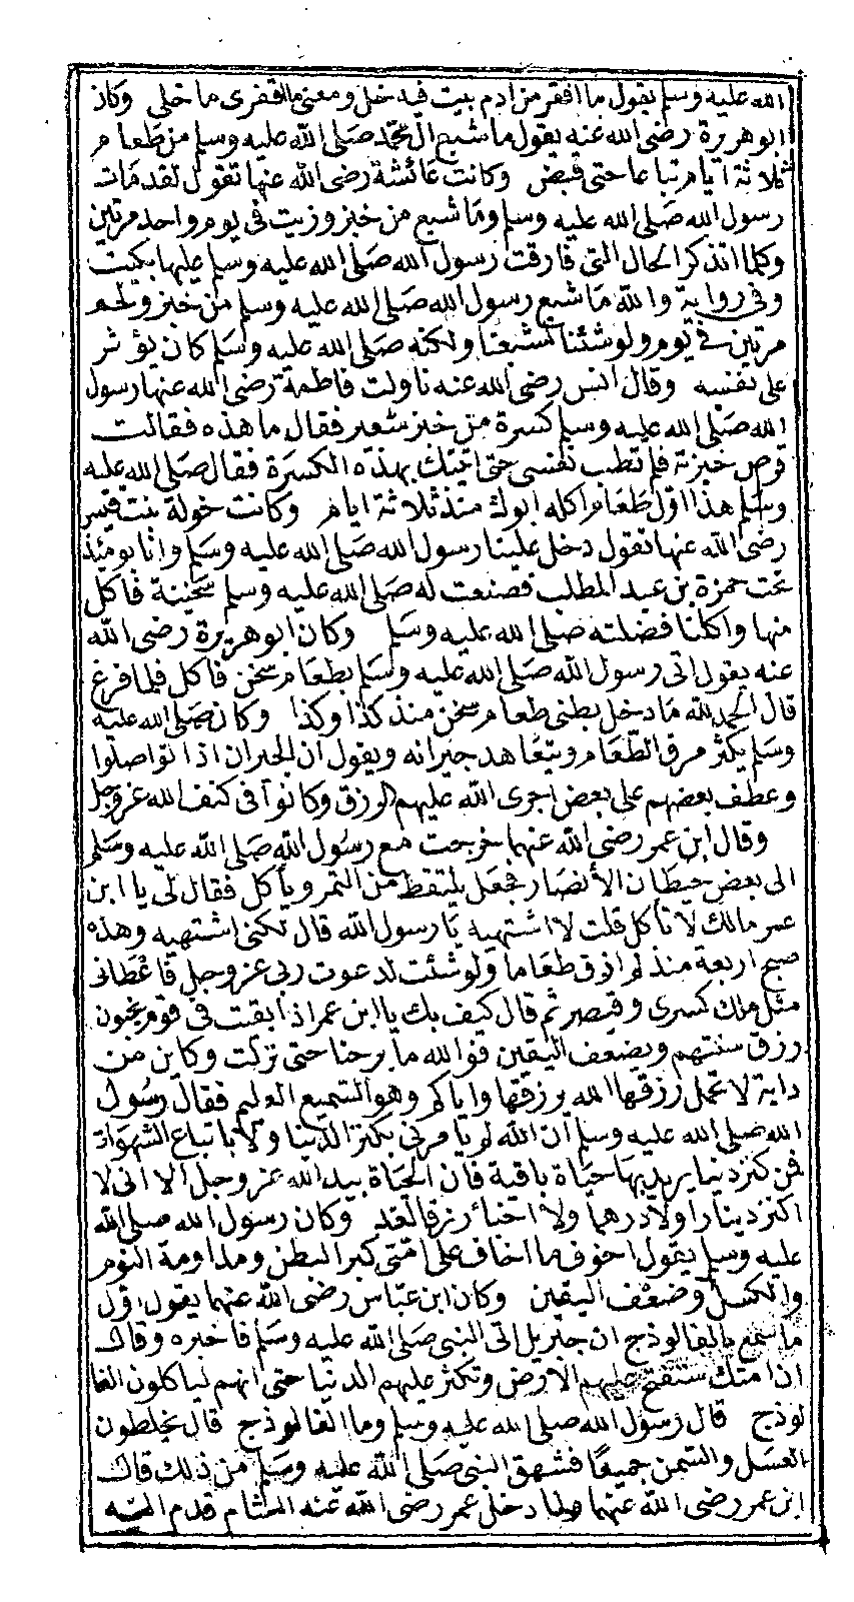 الله عليه وسلم يقول ما اقفر من ادم بيت فيه خل ومعنى ما اقفر اى ما خلى وكان
ابو هريرة رضى الله عنه يقول ما شبع ال محمد صلى الله عليه وسلم من طعام
ثلاثة ايام تباعا حتى قبض وكانت عائشة رضى الله عنها تقول لقد مات
رسول الله صلى الله عليه وسلم وما شبع من خبز وزيت فى يوم واحد مرتين
وكلما اتذكر الحال التى فارقت رسول الله صلى الله عليه وسلم عليها بكيت
وفى رواية والله ما شبع رسول الله صلى الله عليه وسلم من خبز ولحم
مرتين فى يوم ولو شئنا لشبعنا ولكنه صلى الله عليه وسلم كان يؤثر
على نفسه وقال انس رضى الله عنه ناولت فاطمة رضى الله عنها رسول
الله صلى الله عليه وسلم كسرة من خبز شعير فقال ما هذه فقالت
قرص خبزته فلم تطب نفسى حتى اتيتك بهذه الكسرة فقال صلى الله عليه
وسلم هذا اول طعام اكله ابوك منذ ثلاثة ايام وكانت خولة بنت قيس
رضى الله عنها تقول دخل علينا رسول الله صلى الله عليه وسلم وانا يومئذ
تحت حمزة بن عبد المطلب فصنعت له صلى الله عليه وسلم سخينة فاكل
منها واكلنا فضلته صلى الله عليه وسلم وكان ابو هريرة رضى الله
عنه يقول اتى رسول الله صلى الله عليه وسلم بطعام سخن فاكل فلما فرغ
قال الحمد لله ما دخل بطنى طعام سخن منذ كذا وكذا وكان صلى الله عليه
وسلم يكثر مرق الطعام ويتعاهد جيرانه ويقول ان الجيران اذا تواصلوا
وعطف بعضهم على بعض اجرى الله عليهم الرزق وكانوا فى كنف الله عز وجل
وقال ابن عمر رضى الله عنهما خرجت مع رسول الله صلى الله عليه وسلم
الى بعض حيطان الأنصار فجعل يلتقط من التمر ويأكل فقال لى يا ابن
عمر مالك لا تأكل قلت لا اشتهيه يا رسول الله قال لكنى اشتهيه وهذه
صبح اربعة منذ لم اذق طعاما ولو شئت لدعوت ربى عز وجل فاعطانى
مثل ملك كسرى وقيصر ثم قال كيف بك يا ابن عمر اذا بقيت فى قوم يخبون
رزق سنتهم ويضعف اليقين فوالله ما برحنا حتى نزلت وكاين من
دابة لا تحمل رزقها الله يرزقها واياكم وهو السميع العليم فقال رسول
الله صلى الله عليه وسلم ان الله لم يأمرنى بكنز الدنيا ولا باتباع الشهوات
فمن كنز دنيا يريد بها حياة باقية فان الحياة بيد الله عز وجل ألا انى لا
اكنز دينارا ولا درهما ولا اخبأ رزقا لغد وكان رسول الله صلى الله
عليه وسلم يقول اخوف ما اخاف على امتى كبر البطن ومداومة النوم
والكسل وضعف اليقين وكان ابن عباس رضى الله عنهما يقول اول
ما سمع بالفالوذج ان جبريل اتى النبى صلى الله عليه وسلم فاخبره وقال
ان امتك ستفتح عليهم الارض وتكثر عليهم الدنيا حتى انهم لياكلون الفا
لوذج قال رسول الله صلى الله عليه وسلم وما الفالوذج قال يخلطون
العسل والسمن جميعا فشهق النبى صلى الله عليه وسلم من ذلك قال
ابن عمر رضى الله عنهما ولما دخل عمر رضى الله عنه الشام قدم اليه